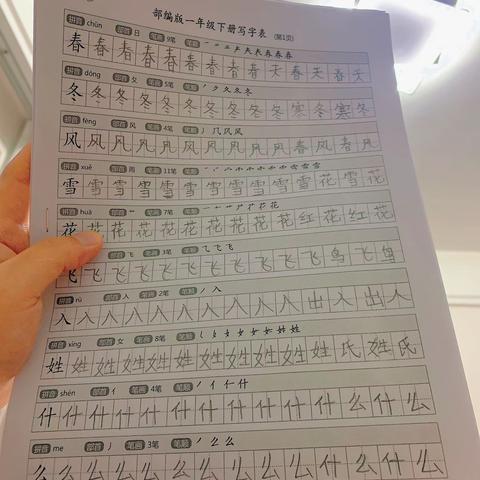 部编版一年级下册写字表 (第1页)
拼音 chūn 部首 日 笔画 9笔 笔顺
春 春 春 春 春 春 春 春 春 天 春 天 春 天
拼音 dōng 部首 夂 笔画 5笔 笔顺 丿 ク 夂 冬 冬
冬 冬 冬 冬 冬 冬 冬 冬 冬 冬 寒 冬 寒 冬
拼音 fēng 部首 风 笔画 4笔 笔顺 丿 几 风 风
风 风 风 风 风 风 风 风 风 风 春 风 春 风
拼音 xuě 部首 雨 笔画 11笔 笔顺
雪 雪 雪 雪 雪 雪 雪 雪 雪 雪 雪 花 雪 花
拼音 huā 部首 艹 笔画 7笔 笔顺
花 花 花 花 花 花 花 花 花 花 红 花 红 花
部首 飞 笔画 3笔 笔顺 乁 飞 飞
飞 飞 飞 飞 飞 飞 飞 飞 飞 飞 飞 鸟 飞 鸟
拼音 rù 部首 入 笔画 2笔 笔顺 丿 入
入 入 入 入 入 入 入 入 入 入 出 入 出 入
拼音 xìng 部首 女 笔画 8笔 笔顺
姓 姓 姓 姓 姓 姓 姓 姓 姓 姓 姓 氏 姓 氏
拼音 shén 部首 亻 笔画 4笔 笔顺 丿 亻 仁 什
什 什 什 什 什 什 什 什 什 什 什 么 什 么
拼音 me 部首 丿 笔画 3笔 笔顺 丿 么 么
么 么 么 么 么 么 么 么 么 么 什 么 什 么